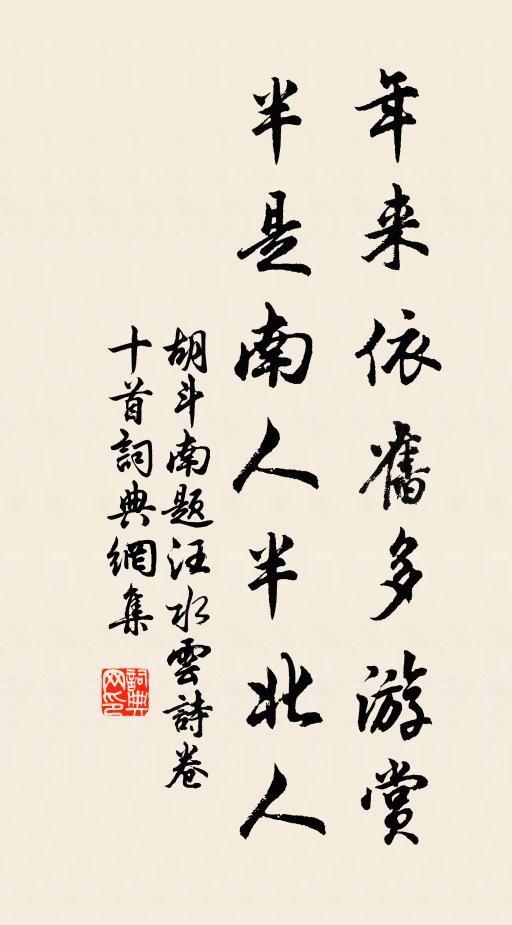 年来依舊多游赏
半是南人半北人
胡斗南题汪水雲詩卷
十首詞典網集
詞典
网印